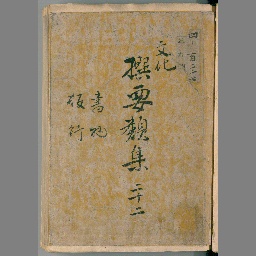 文化
撰要類集 二十二
書物
板行